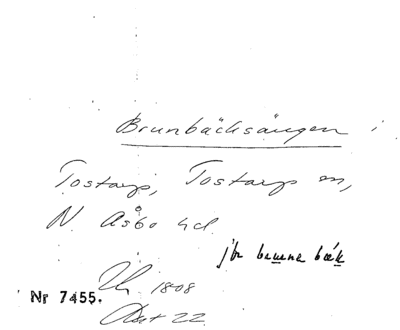 Brunbäcksängen
Tostarp, Tostarp sn,
N. Åsbo hd.
jbr brunne bäck
1808
Nr 7455.
Akt 22